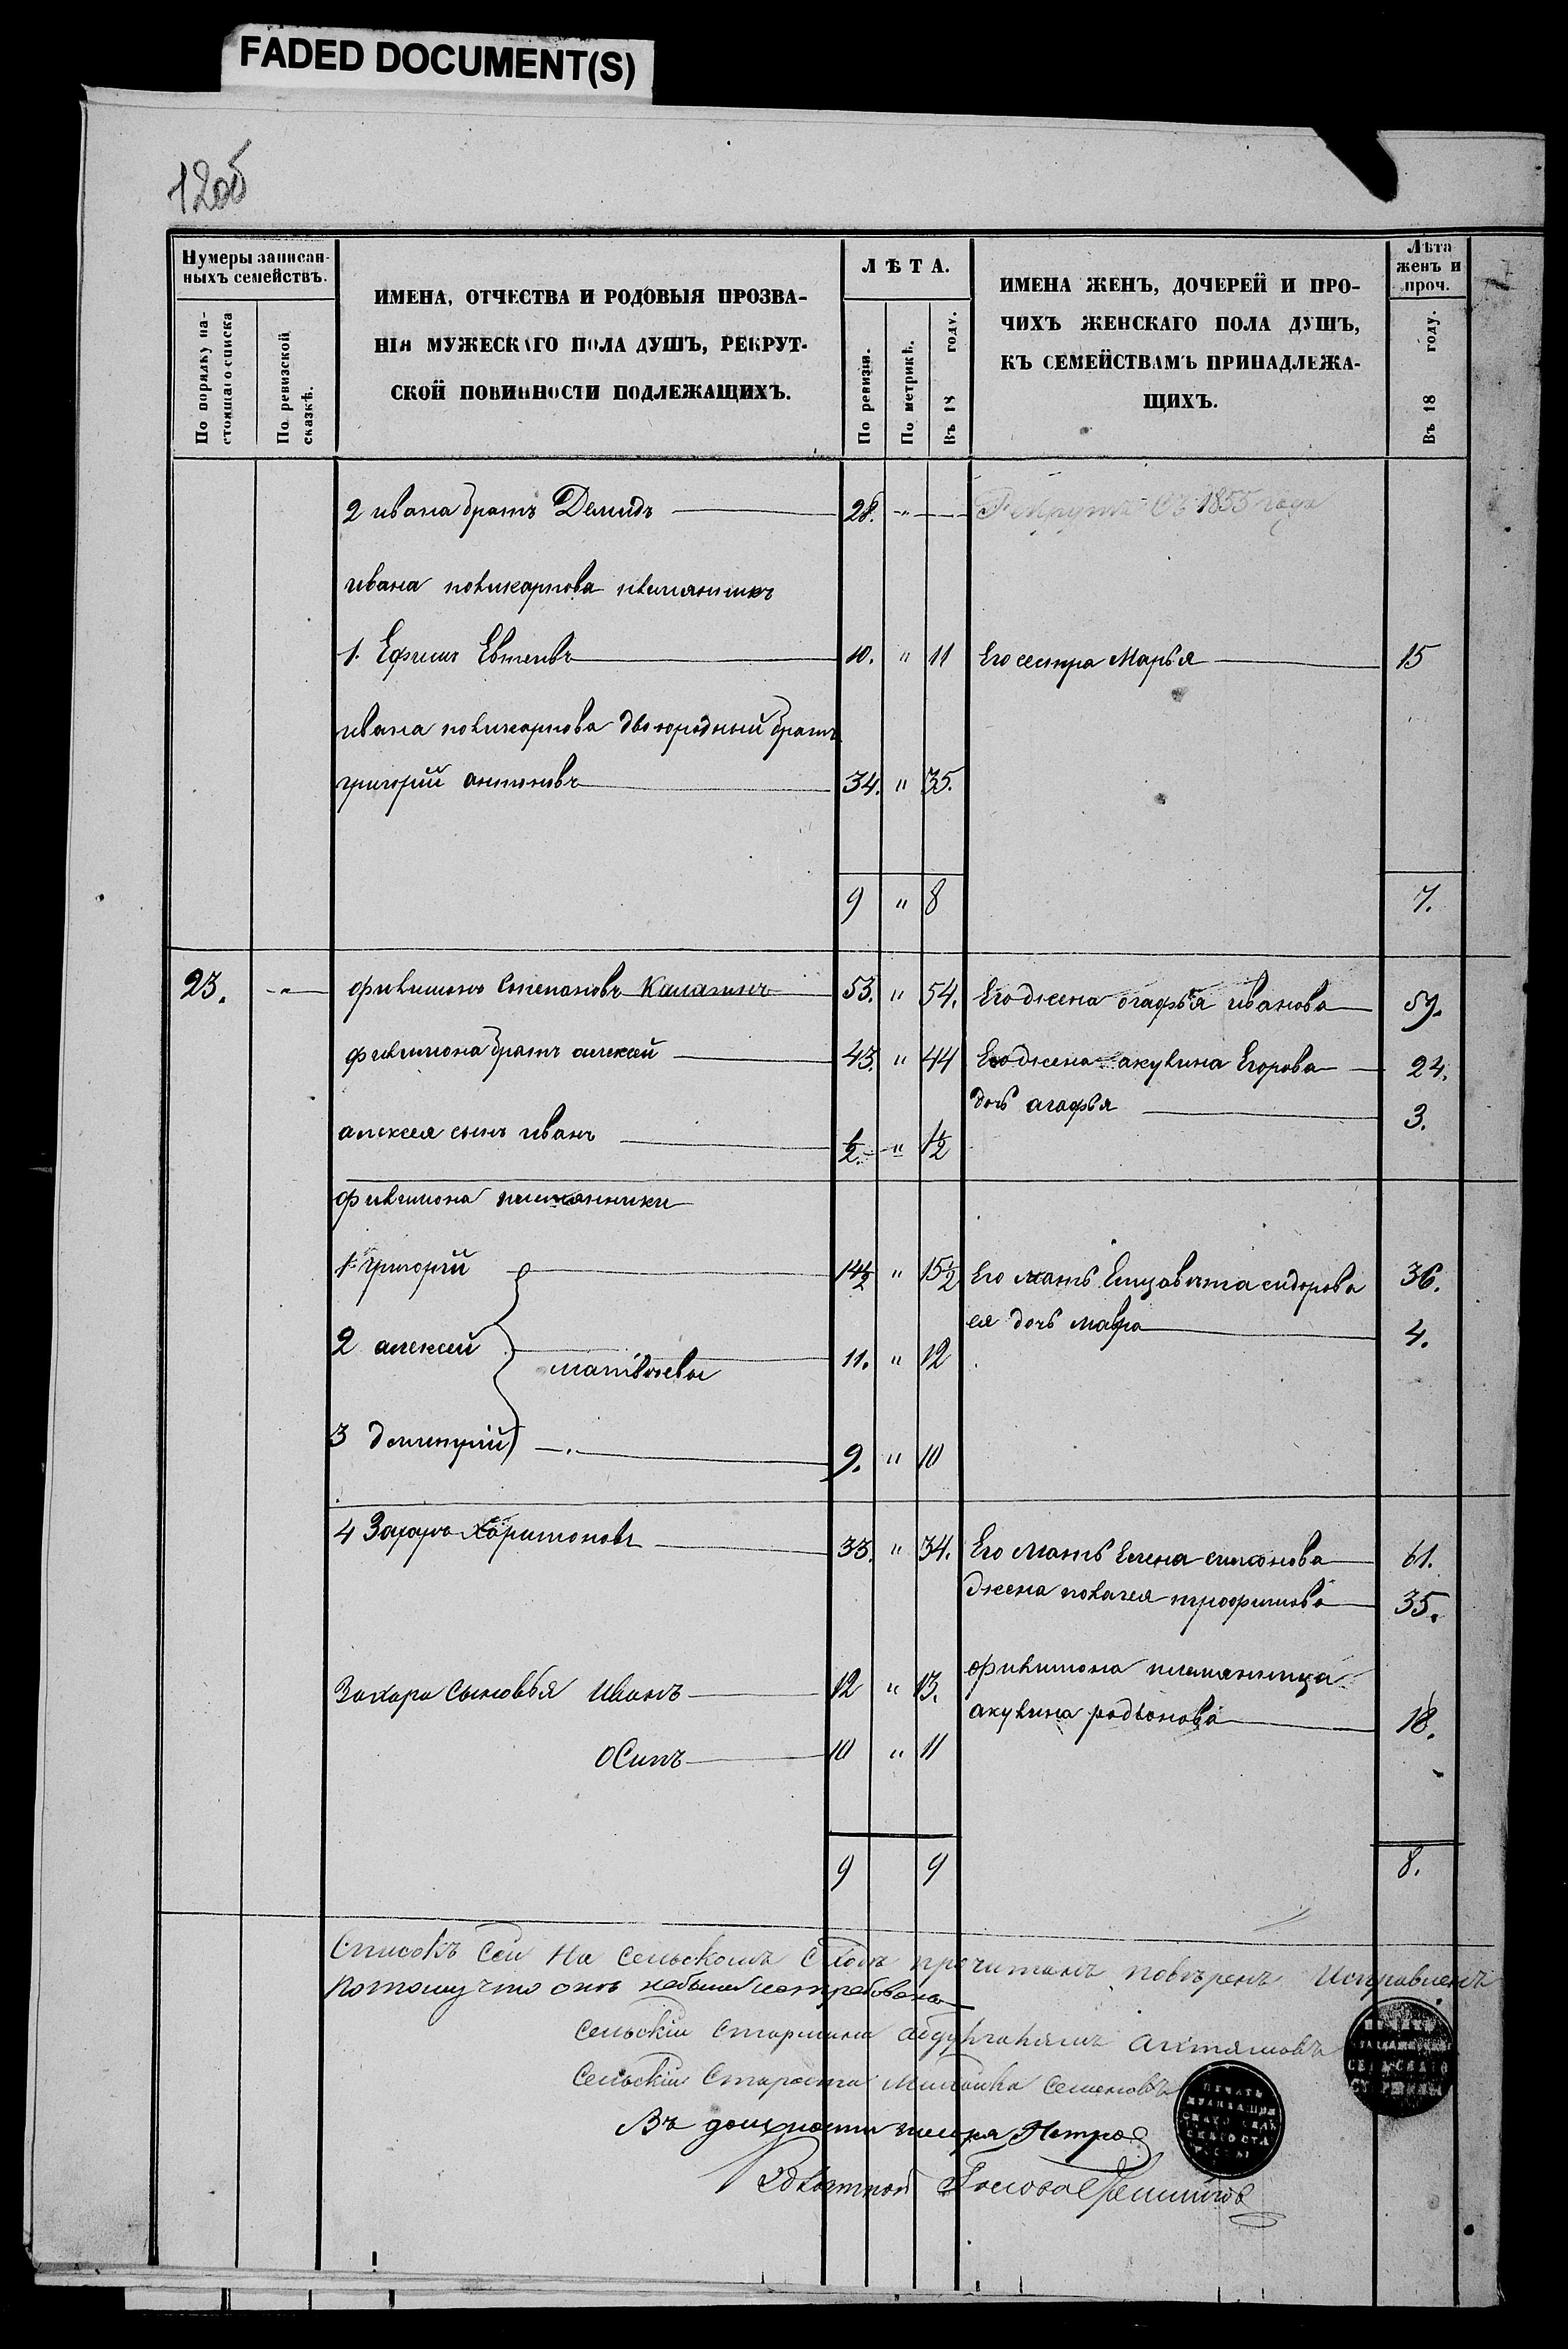 FADED DOCUMENT(S)
120об
Нумеры записан-
ныхъ семействъ.
По порядку на-
стоящаго списка
По ревизской
сказкѣ.
ИМЕНА, ОТЧЕСТВА И РОДОВЫЯ ПРОЗВА-
НІЯ МУЖЕСКАГО ПОЛА ДУШЪ, РЕКРУТ-
СКОЙ ПОВИННОСТИ ПОДЛЕЖАЩИХЪ.
ЛѢТА.
По ревизіи.
По метрикѣ.
Въ 18 году.
ИМЕНА ЖЕНЪ, ДОЧЕРЕЙ И ПРО-
ЧИХЪ ЖЕНСКАГО ПОЛА ДУШЪ,
КЪ СЕМЕЙСТВАМЪ ПРИНАДЛЕЖА-
ЩИХЪ.
Лѣта
женъ и
проч.
Въ 18 году.
2 ивана братъ Демидъ 28. " Рекрутъ Съ 1855 года
ивана поликарпова племянникъ
1. Ефимъ Евтеевъ 10. " 11 Его сестра Марья 15
ивана поликарпова двоюродный братъ
григорій антоновъ 34. " 35.
9 " 8 7.
23. " филимонъ Степановъ Калатинъ 53. " 54. Его жена агафья иванова 59.
филимона братъ алексей 43. " 44 Его жена акулина Егорова 24.
дочь агафья 3.
алексея сынъ иванъ 1/2. " 1 1/2
филимона племянники
1. григорій 14 1/2 " 15 1/2 Его мать Елизавета сидорова 36.
ея дочь мавра 4.
2 алексей 11. " 12
матвѣевы
3 дементій 9. " 10
4 Захаръ Харитоновъ 33. " 34. Его мать Елена симонова 61.
жена пелагея трофимова 35.
филимона племянница
Захара Сыновья Иванъ 12 " 13.
акулина родіонова 18.
Осипъ 10 " 11
9 9 8.
Списокъ Сей На Сельскомъ Сходѣ прочитанъ повѣренъ Исправленъ
Потому что онъ небылъ
Сельскій Старшина Ахтямовъ
Сельскій Староста Семеновъ
Въ должности писаря Петров
Голова
ПЕЧАТЬ
СЕЛЬСКАГО
СТАРШИНЫ
ПЕЧАТЬ